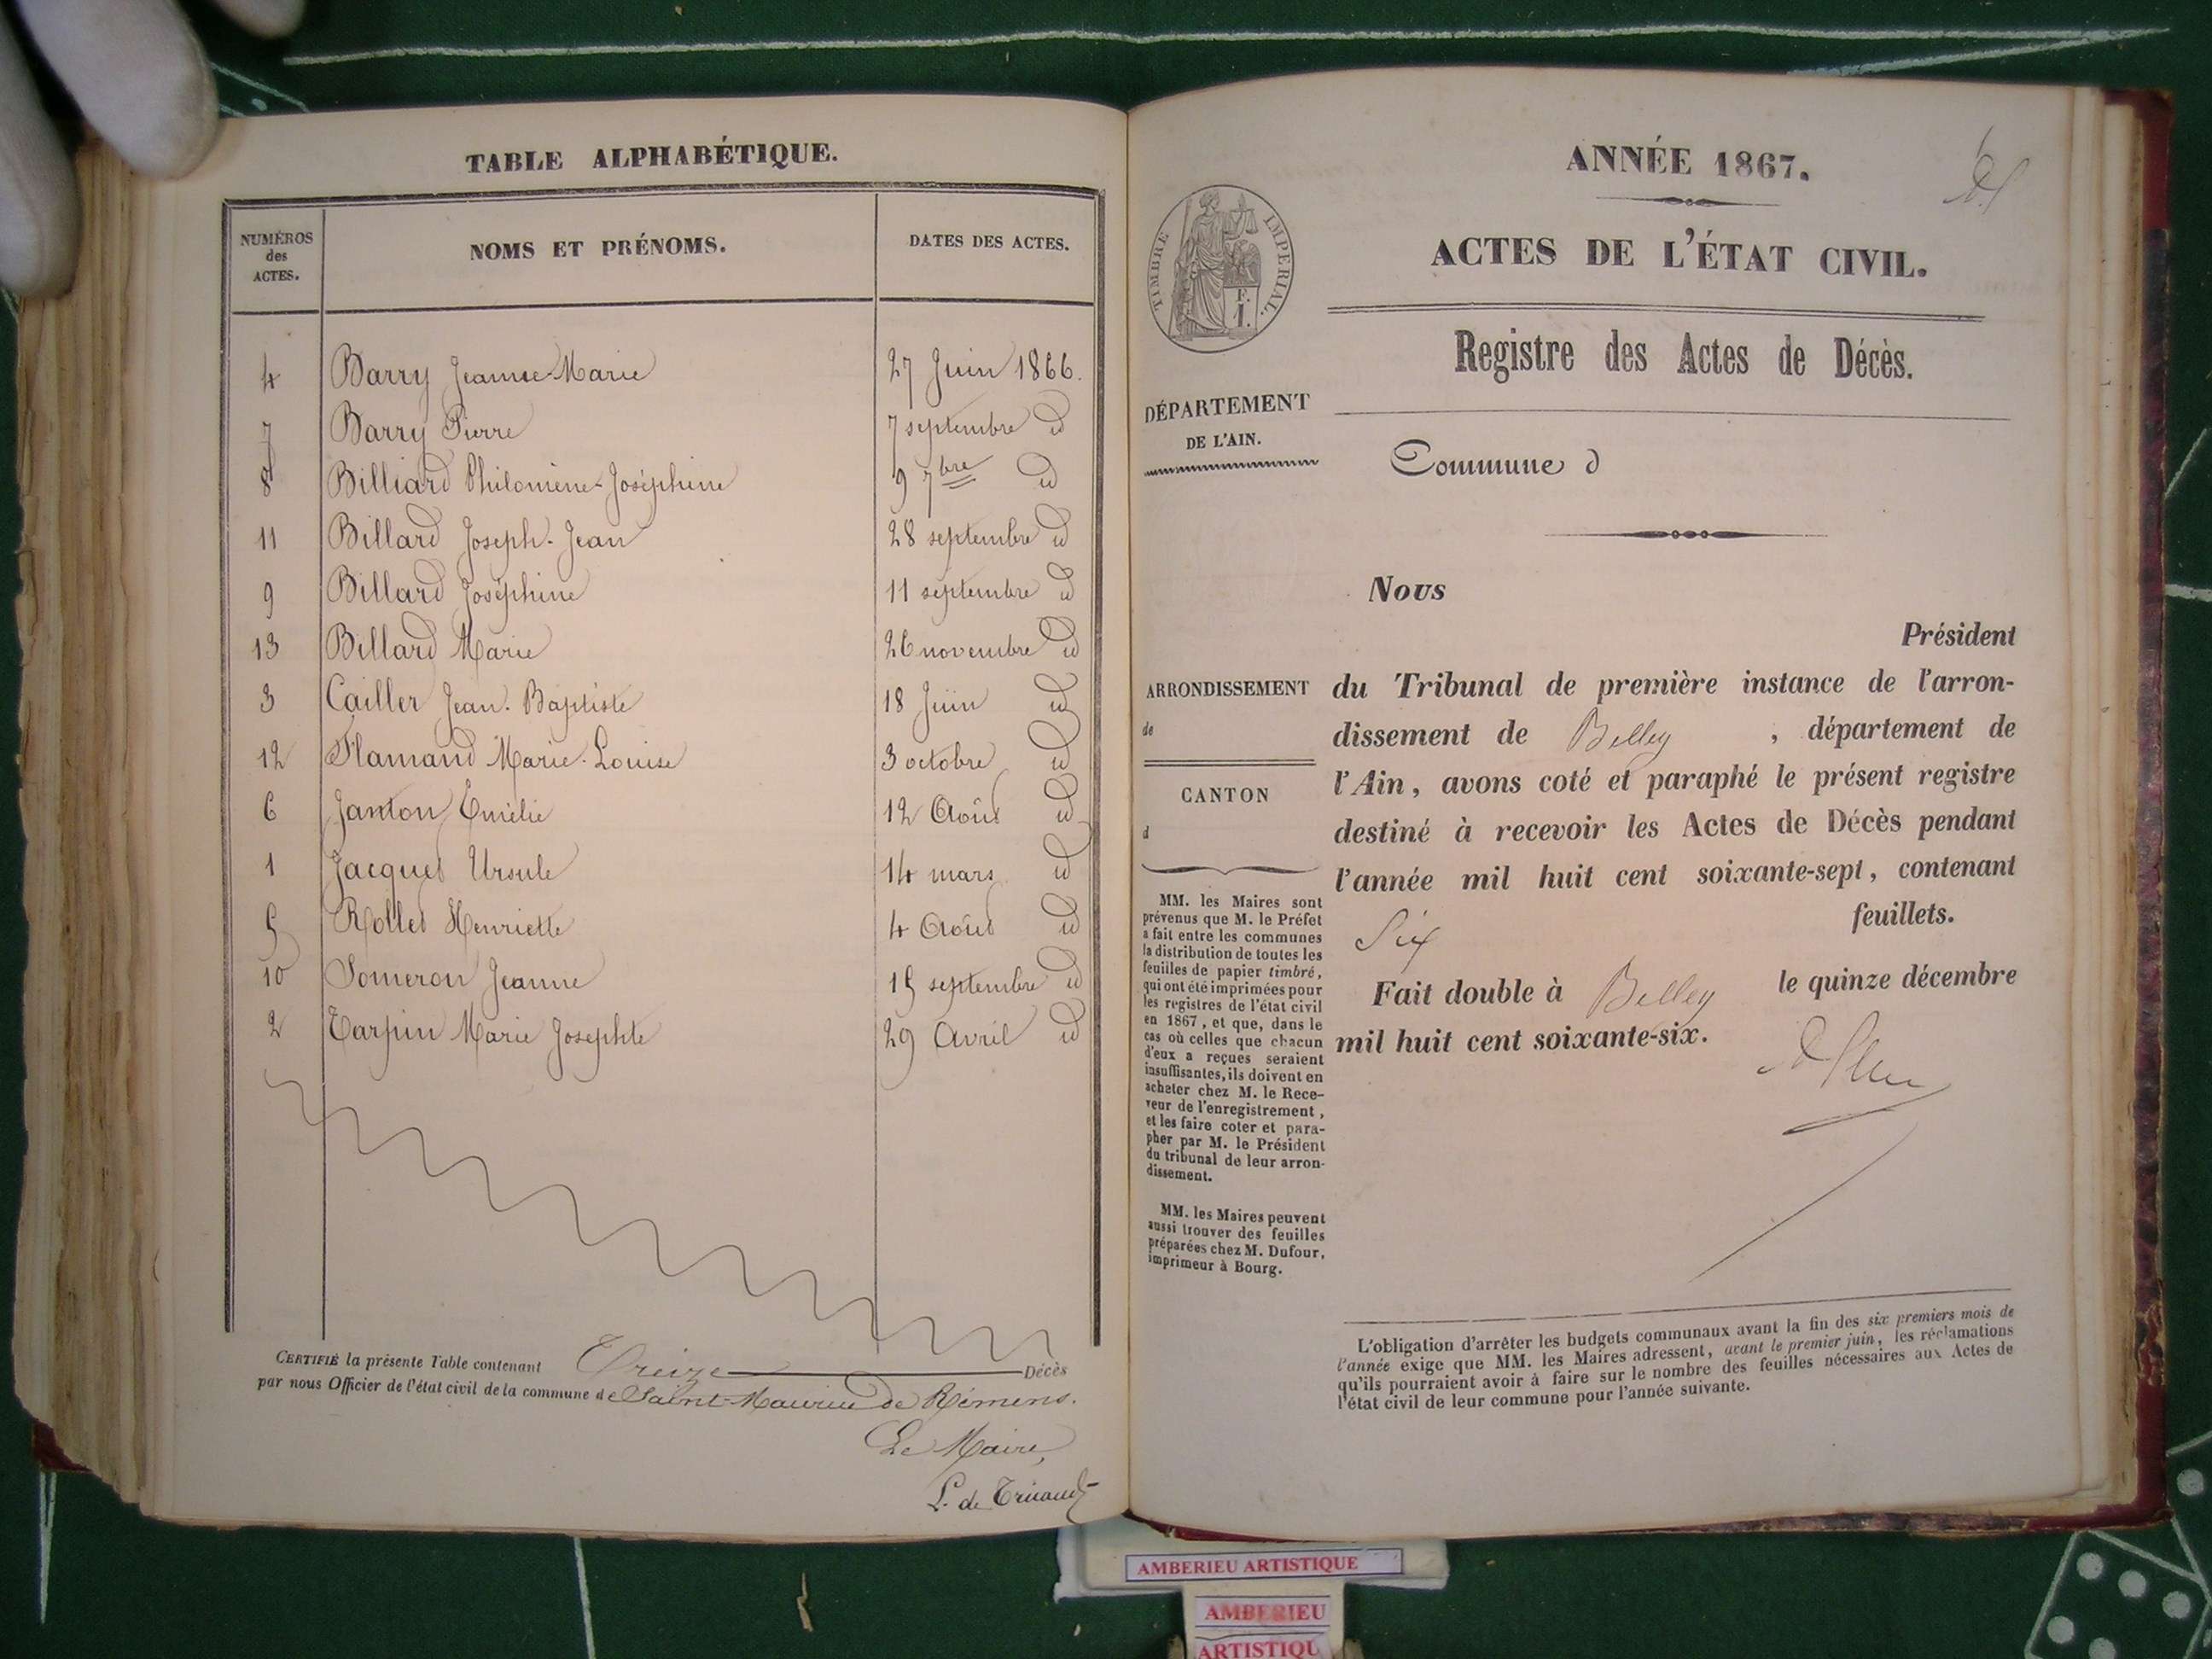 TABLE ALPHABÉTIQUE.
NUMÉROS des ACTES. NOMS ET PRÉNOMS. DATES DES ACTES.
4 Barry Jeanne-Marie 27 Juin 1866.
7 Barry Pierre 7 septembre id
8 Billiard Philomène-Joséphine 9 7bre id
11 Billard Joseph-Jean 28 septembre id
9 Billard Joséphine 11 septembre id
13 Billard Marie 26 novembre id
3 Cailler Jean-Baptiste 18 Juin id
12 Flamand Marie-Louise 3 octobre id
6 Janton Emélie 12 Août id
1 Jacquet Ursule 14 mars id
5 Rollet Henriette 4 Août id
10 Someron Jeanne 15 septembre id
2 Tarpin Marie Josephte 29 Avril id
CERTIFIÉ la présente Table contenant Treize Décès
par nous Officier de l'état civil de la commune de Saint-Maurice de Rémens.
Le Maire,
L. de Tricaud
ANNÉE 1867.
ACTES DE L'ÉTAT CIVIL.
TIMBRE IMPERIAL.
F. 1.
Registre des Actes de Décès.
DÉPARTEMENT
DE L'AIN.
Commune d
Nous
Président
ARRONDISSEMENT
de
CANTON
d
du Tribunal de première instance de l'arron-
dissement de Belley , département de
l'Ain, avons coté et paraphé le présent registre
destiné à recevoir les Actes de Décès pendant
l'année mil huit cent soixante-sept, contenant
Six feuillets.
Fait double à Belley le quinze décembre
mil huit cent soixante-six.
MM. les Maires sont
prévenus que M. le Préfet
a fait entre les communes
la distribution de toutes les
feuilles de papier timbré,
qui ont été imprimées pour
les registres de l'état civil
en 1867, et que, dans le
cas où celles que chacun
d'eux a reçues seraient
insuffisantes, ils doivent en
acheter chez M. le Rece-
veur de l'enregistrement,
et les faire coter et para-
pher par M. le Président
du tribunal de leur arron-
dissement.
MM. les Maires peuvent
aussi trouver des feuilles
préparées chez M. Dufour,
imprimeur à Bourg.
L'obligation d'arrêter les budgets communaux avant la fin des six premiers mois de
l'année exige que MM. les Maires adressent, avant le premier juin, les réclamations
qu'ils pourraient avoir à faire sur le nombre des feuilles nécessaires aux Actes de
l'état civil de leur commune pour l'année suivante.
AMBERIEU ARTISTIQUE
AMBERIEU
ARTISTIQU